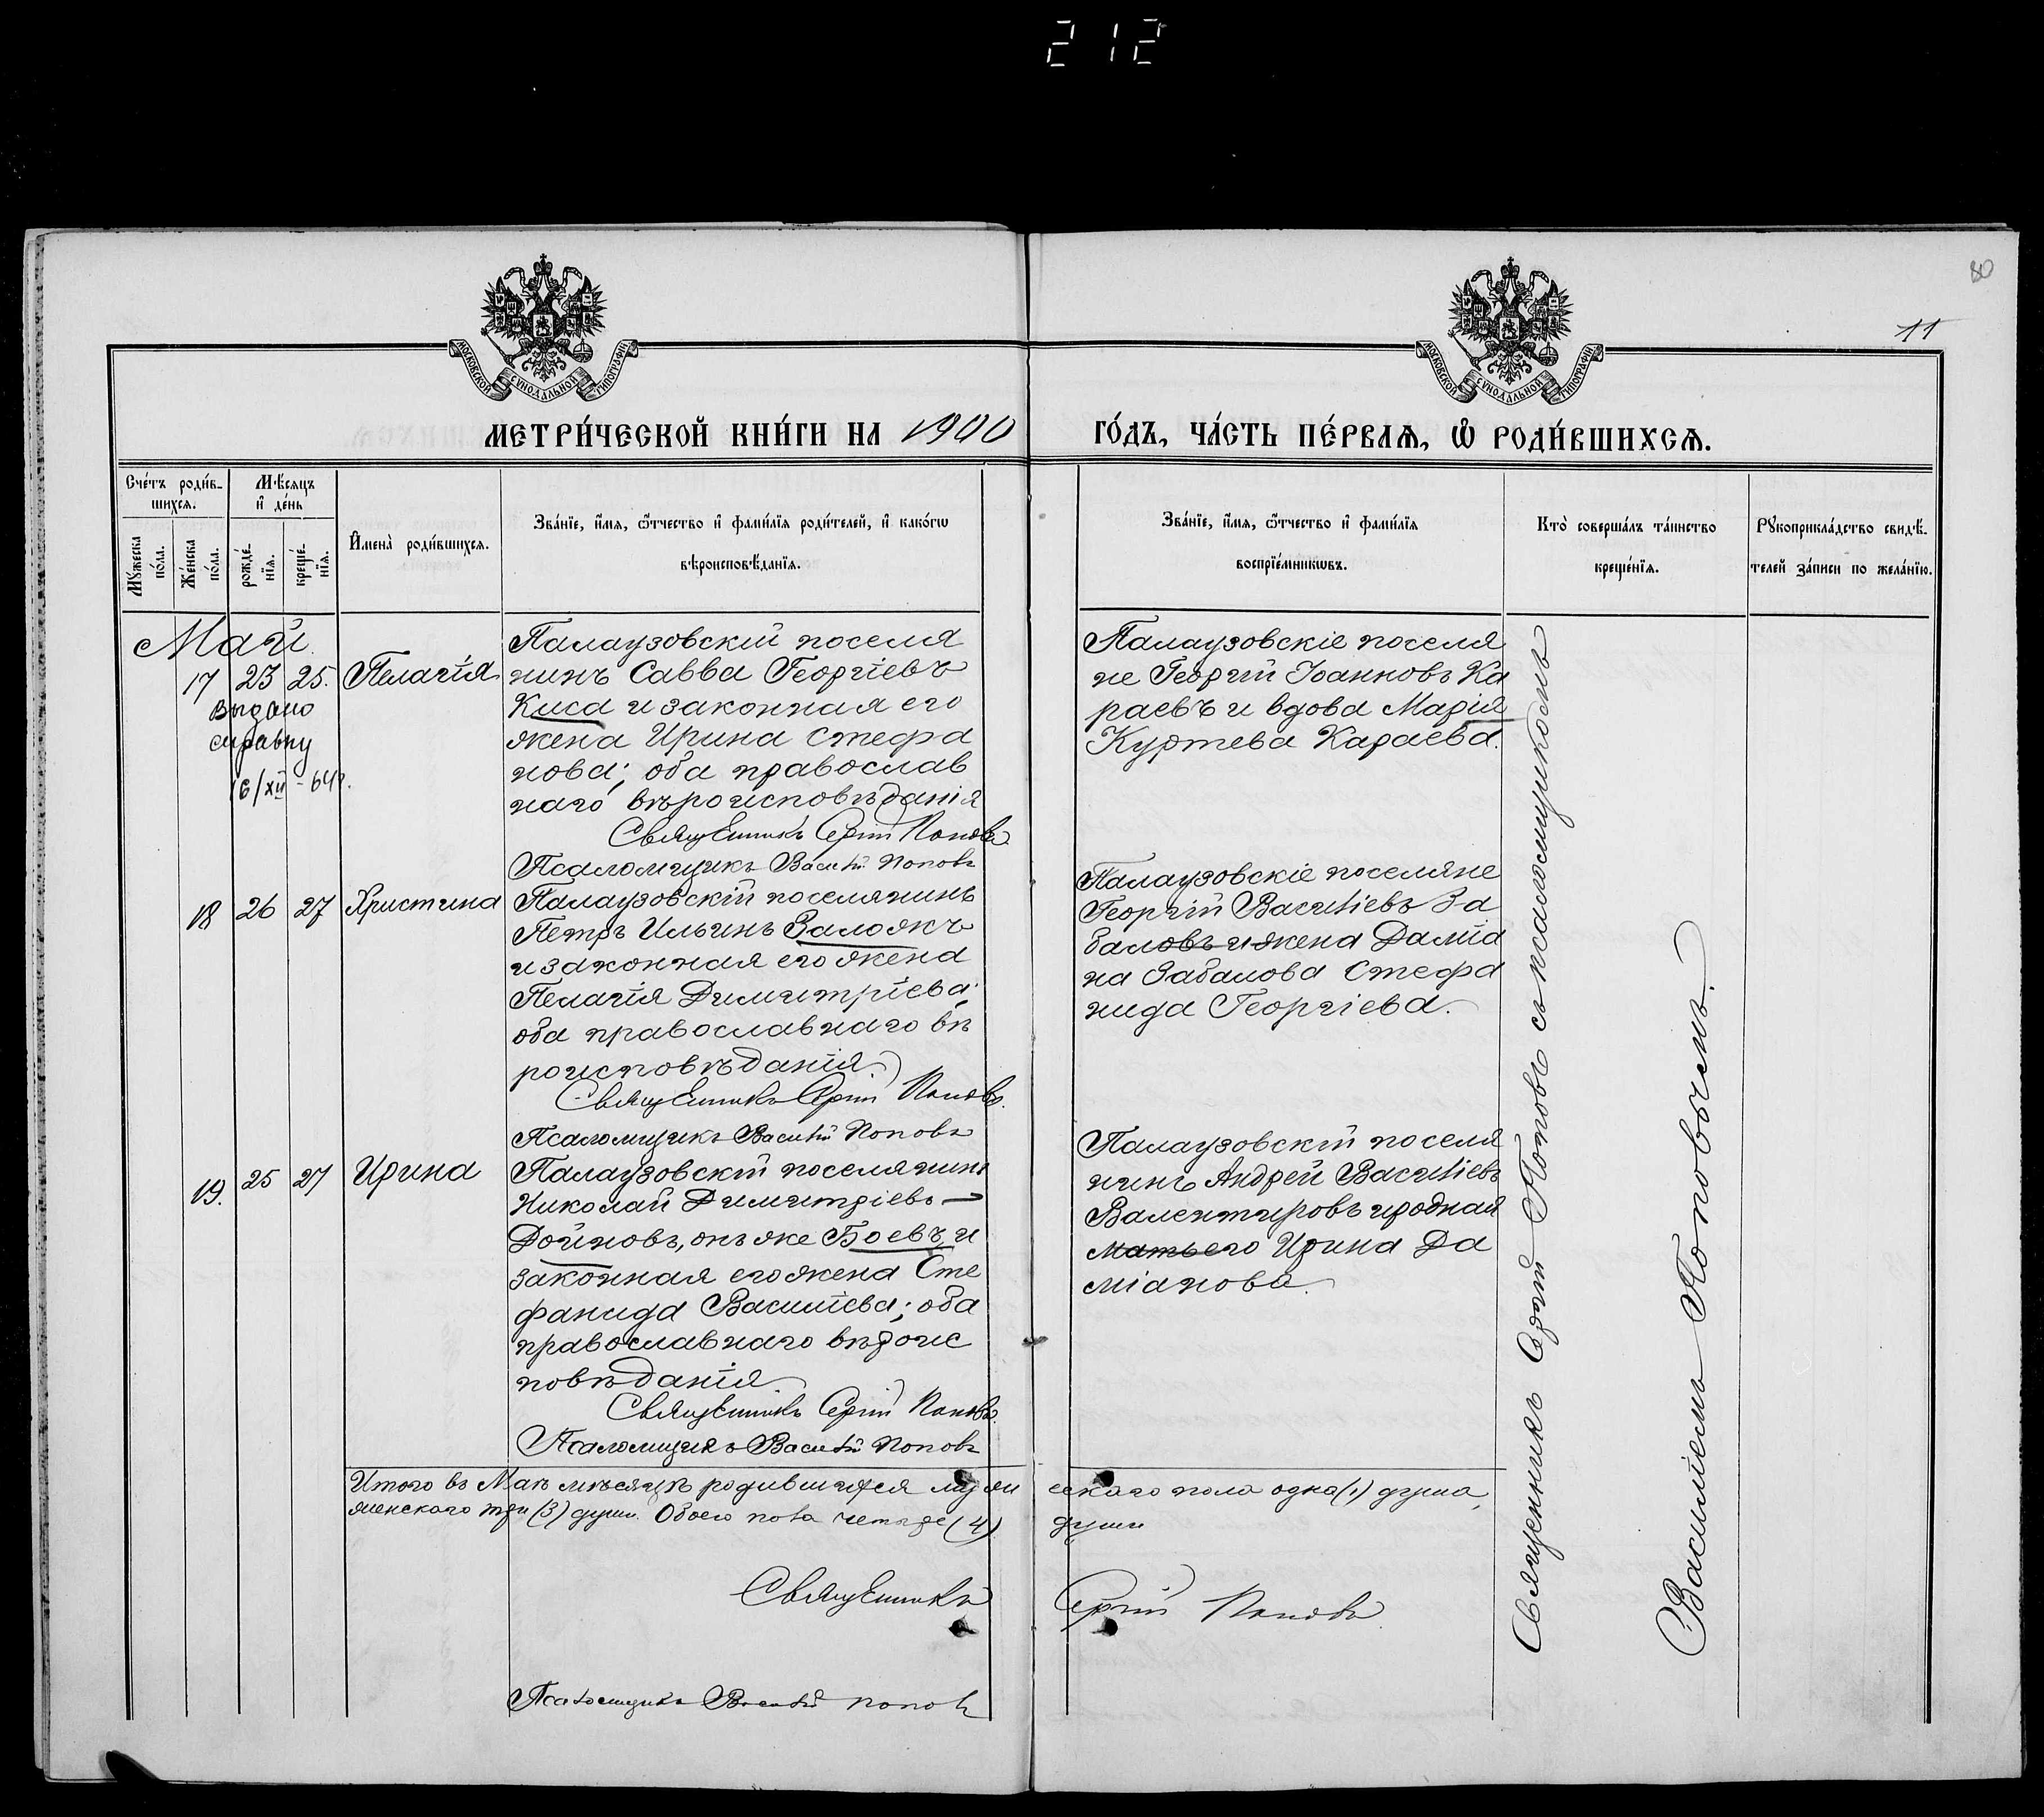 212
80
11
МОСКОВСКОЙ СѴНОДАЛЬНОЙ ТИПОГРАФІИ
МОСКОВСКОЙ СѴНОДАЛЬНОЙ ТИПОГРАФІИ
МЕТРИ́ЧЕСКОЙ КНИ́ГИ НА 1900 ГО́ДЪ, ЧА́СТЬ ПЕ́РВАѦ, Ѽ РОДИ́ВШИХСѦ.
Сче́тъ роди́в-
шихсѧ.
Мꙋжеска по́ла.
Же́нска по́ла.
Мѣ́сѧцъ
и҆ де́нь
рожде́-
нїѧ.
креще́-
нїѧ.
И҆мена̀ роди́вшихсѧ.
Зва́нїе, и҆́мѧ, ѻ҆́тчество и҆ фами́лїѧ роди́телей, и҆ како́гѡ
вѣроисповѣ́данїѧ.
Зва́нїе, и҆́мѧ, ѻ҆́тчество и҆ фами́лїѧ
воспрїе́мникѡвъ.
Кто̀ соверша́лъ та́инство
креще́нїѧ.
Рꙋкоприкла́дство свидѣ́-
телей за́писи по жела́нїю.
Май.
17 23 25. Пелагія
Выдано
справку
16/XII - 64г.
Палаузовскій поселя
нинъ Савва Георгіевъ
Киса и законная его
жена Ирина Стефа
нова; оба православ
наго вѣроисповѣданія
Священникъ Сергій Поповъ
Псаломщикъ Василій Поповъ
Палаузовскіе поселя
не Георгій Іоанновъ Ка
раевъ и вдова Марія
Куртева Караева.
18 26 27 Христина
Палаузовскій поселянинъ
Петръ Ильинъ Заложкъ
и законная его жена
Пелагія Димитріева;
оба православнаго вѣ
роисповѣданія.
Священникъ Сергій Поповъ.
Псаломщикъ Василій Поповъ
Палаузовскіе поселяне
Георгій Василіевъ За
баловъ и жена Даміа
на Забалова Стефа
нида Георгіева.
19. 25 27 Ирина
Палаузовскій поселянинъ
Николай Димитріевъ
Дойновъ, онъ же Боевъ и
законная его жена Сте
фанида Василіева; оба
православнаго вѣроис
повѣданія.
Священникъ Сергій Поповъ.
Псаломщикъ Василій Поповъ
Палаузовскій поселя
нинъ Андрей Василіевъ
Валентировъ и родная
мать его Ирина Да
міанова.
Священникъ Сергій Поповъ съ псаломщикомъ
Василіемъ Поповымъ.
Итого въ Маѣ мѣсяцѣ родившихся мужескаго пола одна (1) душа,
женскаго три (3) души. Обоего пола четыре (4) души
Священникъ Сергій Поповъ.
Псаломщикъ Василій Поповъ